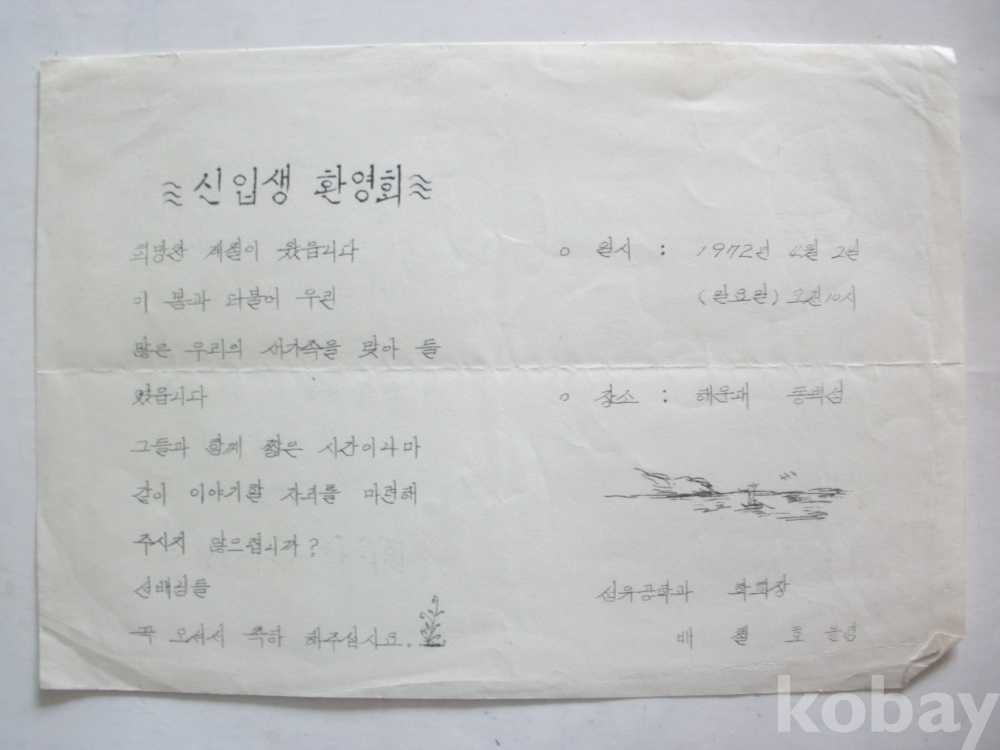 신입생 환영회
희망찬 계절이 왔읍니다
이 봄과 더불어 우린
많은 우리의 새가족을 맞아 들
였읍니다
그들과 함께 짧은 시간이나마
같이 이야기할 자리를 마련해
주시지 않으렵니까?
선배님들
꼭 오셔서 축하 해주십시요.
o 일시 : 1972년 4월 2일
(일요일) 오전10시
o 장소 : 해운대 동백섬
섬유공학과 학회장
배 철 호 올림
kobay